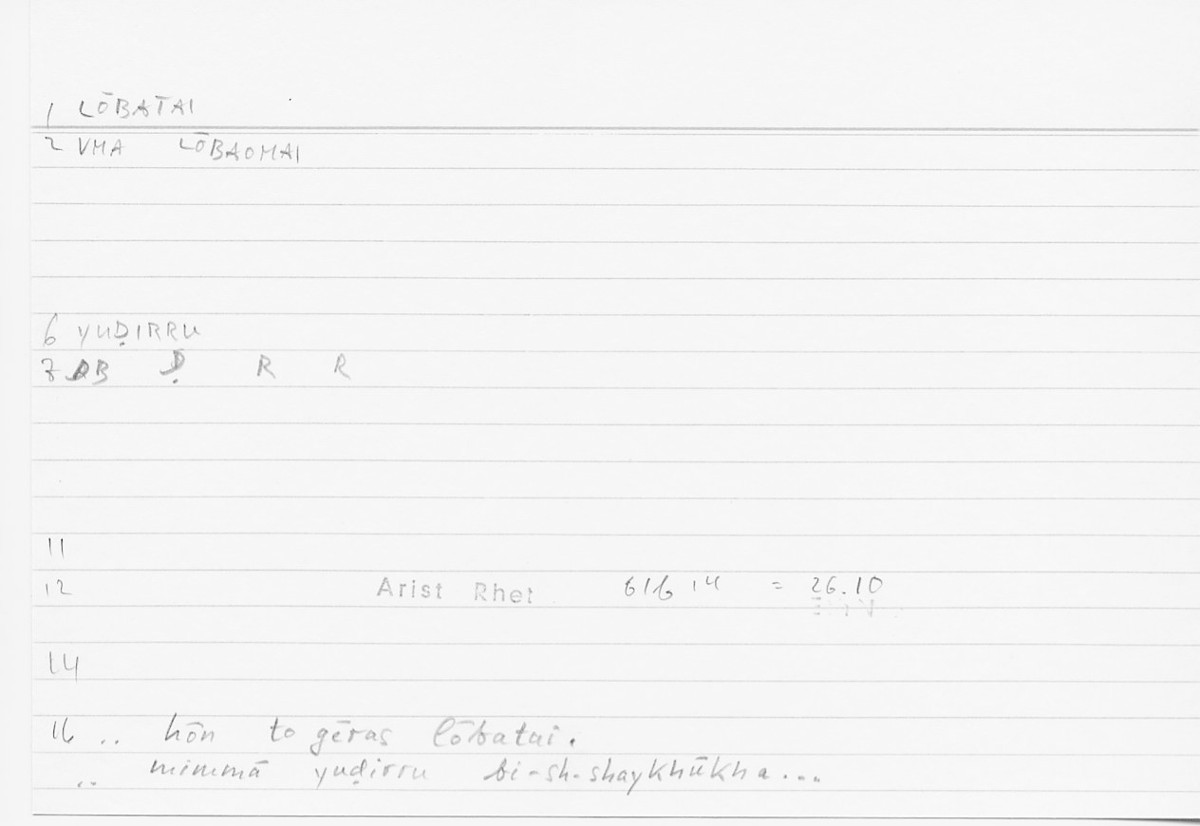 1 LŌBATAI
2 VMA LŌBAOMAI
6 YUḌIRRU
7 DB Ḍ R R
11
12 Arist Rhet 61b 14 = 26.10
14
16 .. hōn to gēras lōbatai.
.. mimmā yuḍirru bi-sh-shaykhūkha...